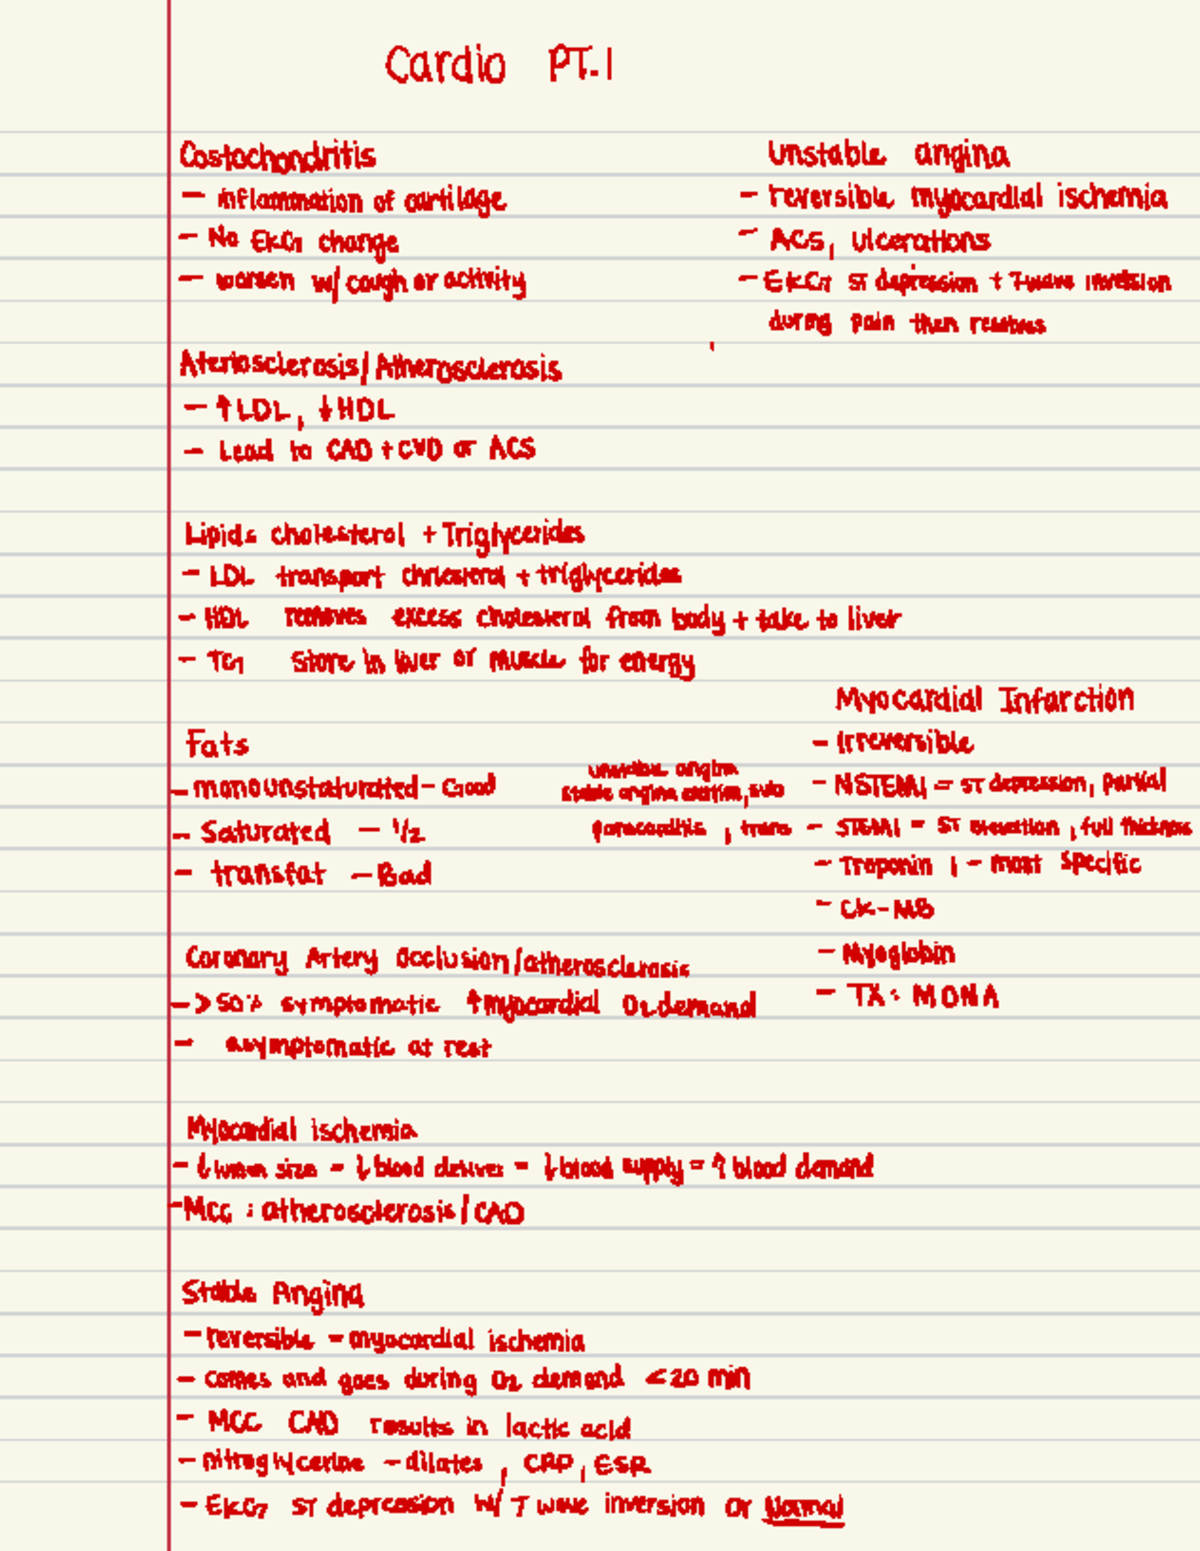 Cardio PT.1
Costochondritis
- inflammation of cartilage
- No EKG change
- worsen w/ cough or activity
Unstable angina
- reversible myocardial ischemia
- ACS, ulcerations
- EKG ST depression + T wave inversion
during pain then resolves
Ateriosclerosis/Atherosclerosis
- ↑LDL, ↓HDL
- Lead to CAD + CVD or ACS
Lipids cholesterol + Triglycerides
- LDL transport cholesterol + triglycerides
- HDL removes excess cholesterol from body + take to liver
- TG store in liver or muscle for energy
Fats
- monounstaturated - Good
- Saturated - 1/2
- transfat - Bad
unstable angina
stable angina , sub
, trans
Myocardial Infarction
- Irreversible
- NSTEMI = ST depression, partial
- STEMI = ST elevation, full thickness
- Troponin 1 - most specific
- CK-MB
- Myoglobin
- TX: MONA
Coronary Artery Occlusion/atherosclerosis
- >50% symptomatic ↑myocardial O2 demand
- asymptomatic at rest
Myocardial ischemia
- ↓lumen size = ↓blood deliver = ↓blood supply = ↑ blood demand
- MCC : atherosclerosis/CAD
Stable Angina
- reversible - myocardial ischemia
- comes and goes during O2 demand <20 min
- MCC CAD results in lactic acid
- nitroglycerine - dilates, CRP, ESR
- EKG ST depression w/ T wave inversion or Normal